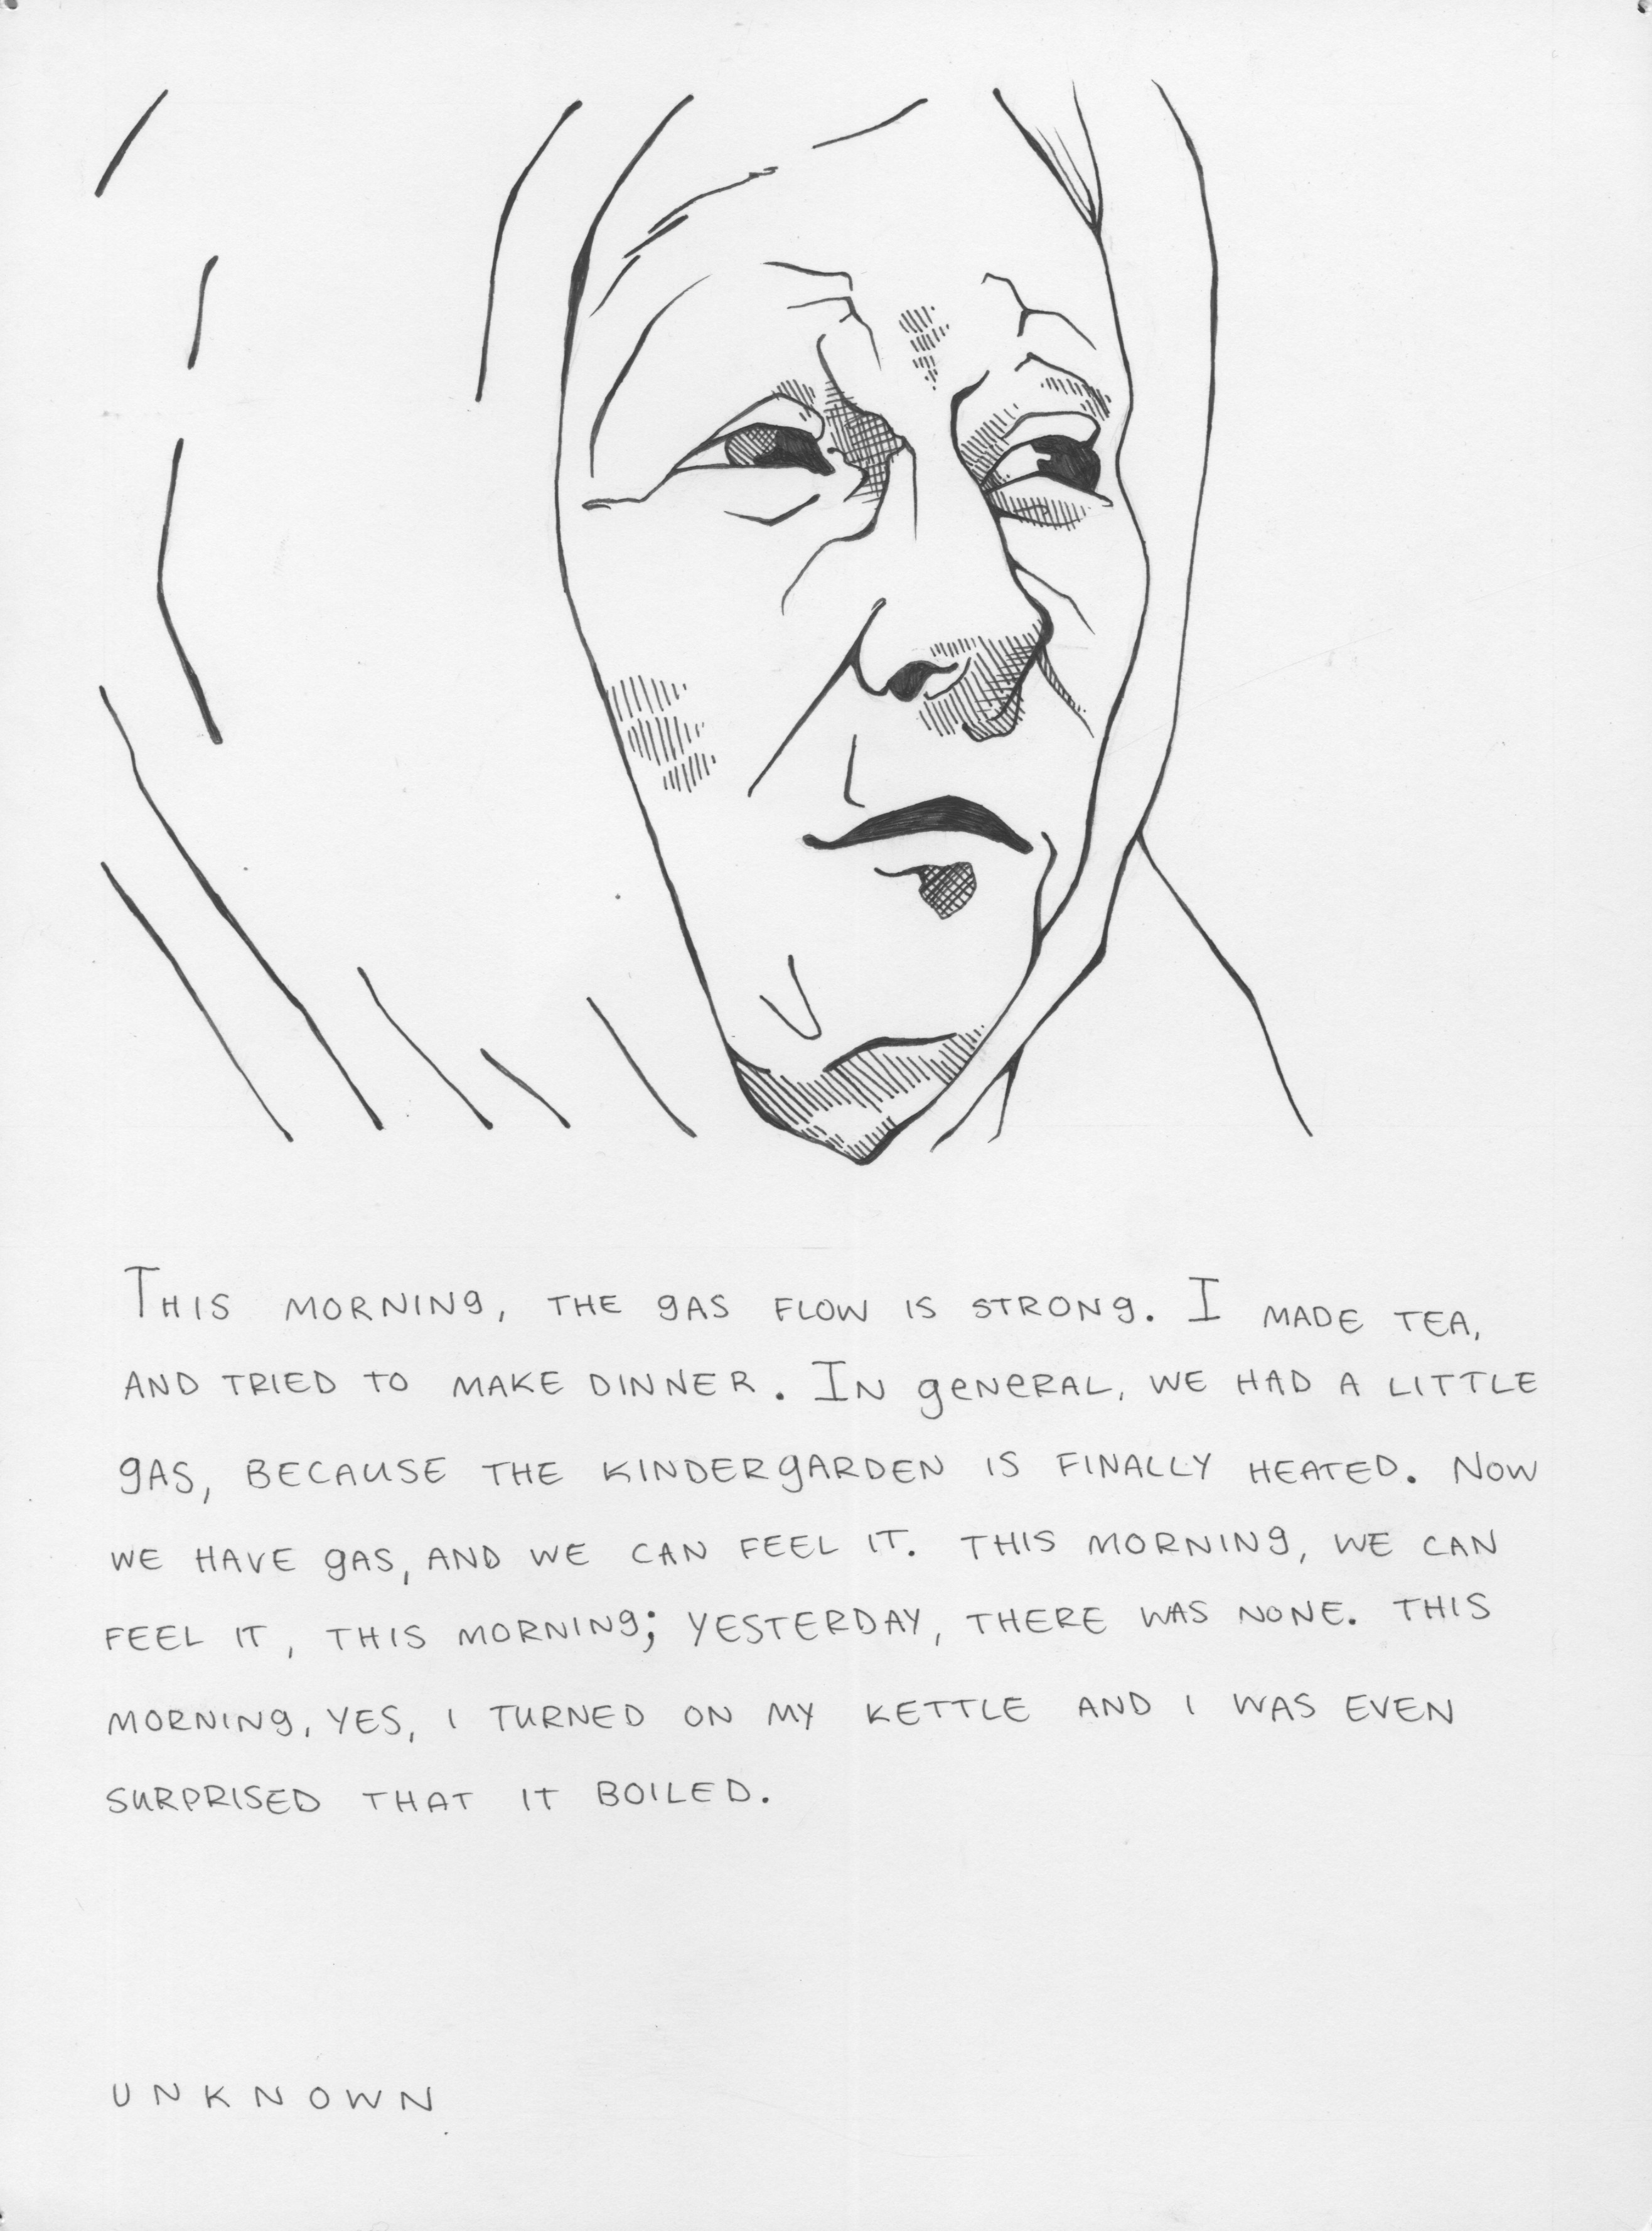 This morning, the gas flow is strong. I made tea,
and tried to make dinner. In general, we had a little
gas, because the kindergarden is finally heated. Now
we have gas, and we can feel it. This morning, we can
feel it, this morning; yesterday, there was none. This
morning, yes, I turned on my kettle and I was even
surprised that it boiled.
UNKNOWN